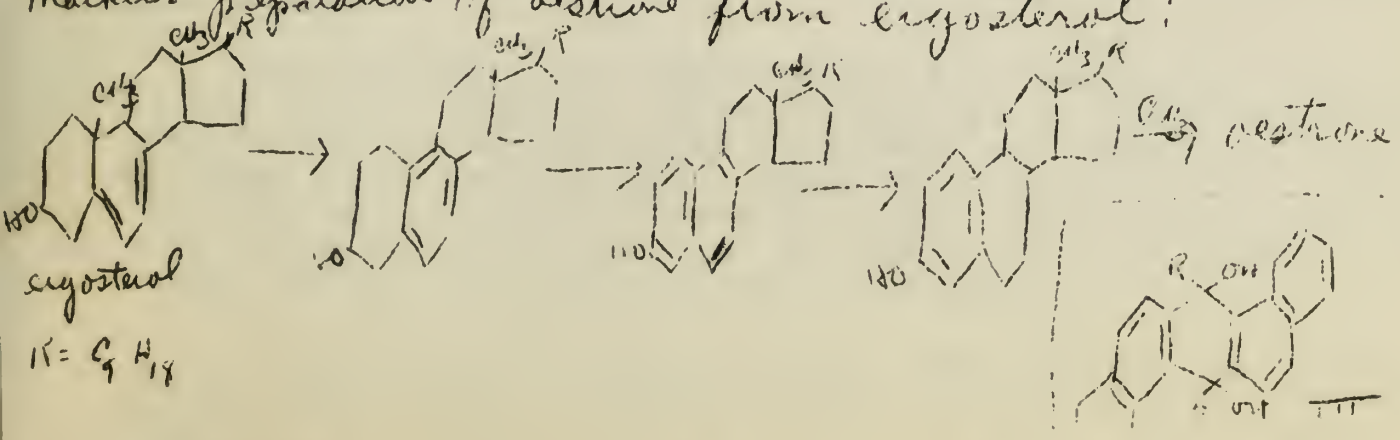 Marker's preparation of oestrone from ergosterol:
CH3 R
CH3
HO
ergosterol
R = C9 H18
CH3 R
HO
CH3 R
HO
CH3 R
HO
CrO3 oestrone
R OH
OH III